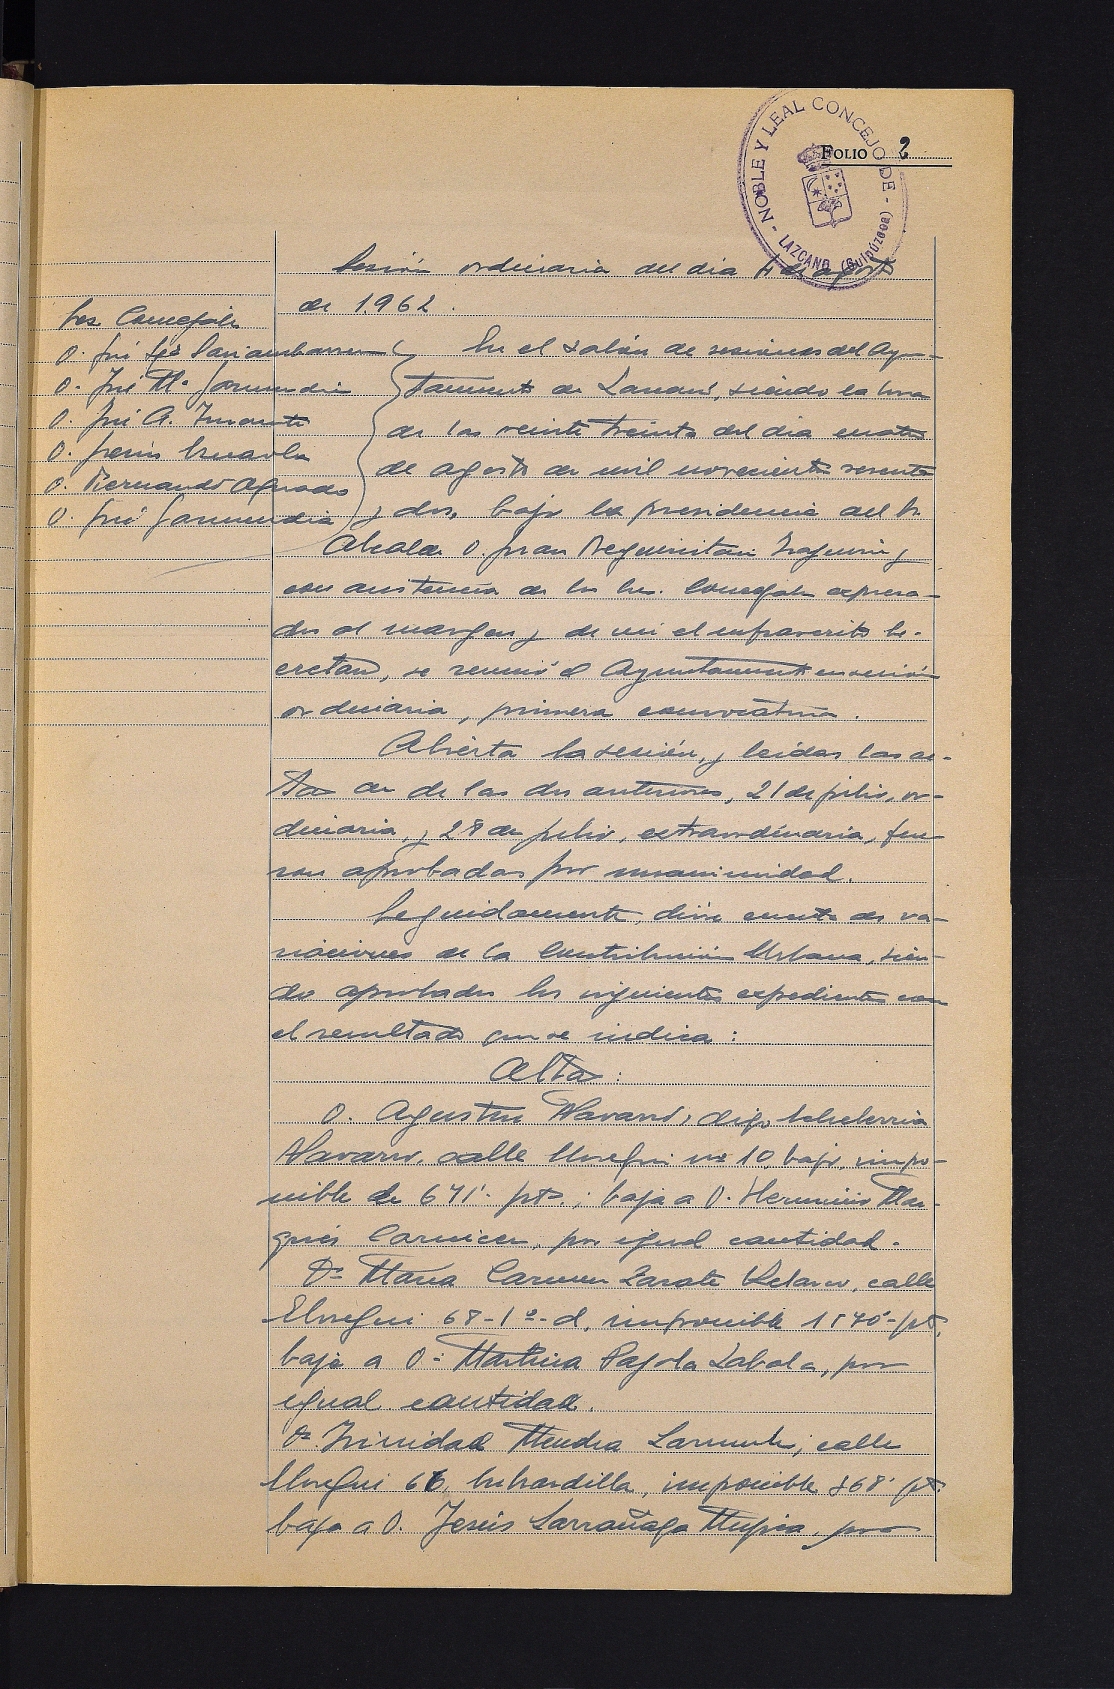 NOBLE Y LEAL CONCEJO DE - LAZCANO (Guipúzcoa) -
FOLIO 2
Sesión ordinaria del dia 4 de agosto
de 1962.
Sres Concejales
D. José
D. José Mª Garmendia
D. José A.
D. Jesús
D. Bernardo Aguado
D. José Garmendia
En el salón de sesiones del Ayun-
tamiento de Lazcano, siendo la hora
de las veinte treinta del dia cuatro
de agosto de mil novecientos sesenta
y dos, bajo la presidencia del Sr.
Alcalde D. Juan Iraguirre y
con asistencia de los Sres. Concejales expresa-
dos al margen y de mi el infrascrito Se-
cretario, se reunió el Ayuntamiento en sesión
ordinaria, primera convocatoria.
Abierta la sesión, y leidas las ac-
tas de de las dos anteriores, 21 de julio, or-
dinaria, y 28 de julio, extraordinaria, fue-
ron aprobadas por unanimidad.
Seguidamente, dióse cuenta de va-
riaciones de la Contribución Urbana, sien-
do aprobados los siguientes expedientes con
el resultado que se indica:
Altas:
D. Agustin Navarro, digo Echeverria
Navarro, calle Elosegui nº 10, bajo, impo-
nible de 671'- pts.; baja a D. Herminio Mar-
qués Carnicer, por igual cantidad.
Dª Maria Carmen Zarate Velasco, calle
Elosegui 68-1º-d, imponible 1570'- pts.
baja a Dª Martina Pagola Zabala, por
igual cantidad.
Dª Trinidad Mendia calle
Elosegui 66, buhardilla, imponible 868'- pts.
baja a D. Jesús Larrañaga Mujica, por